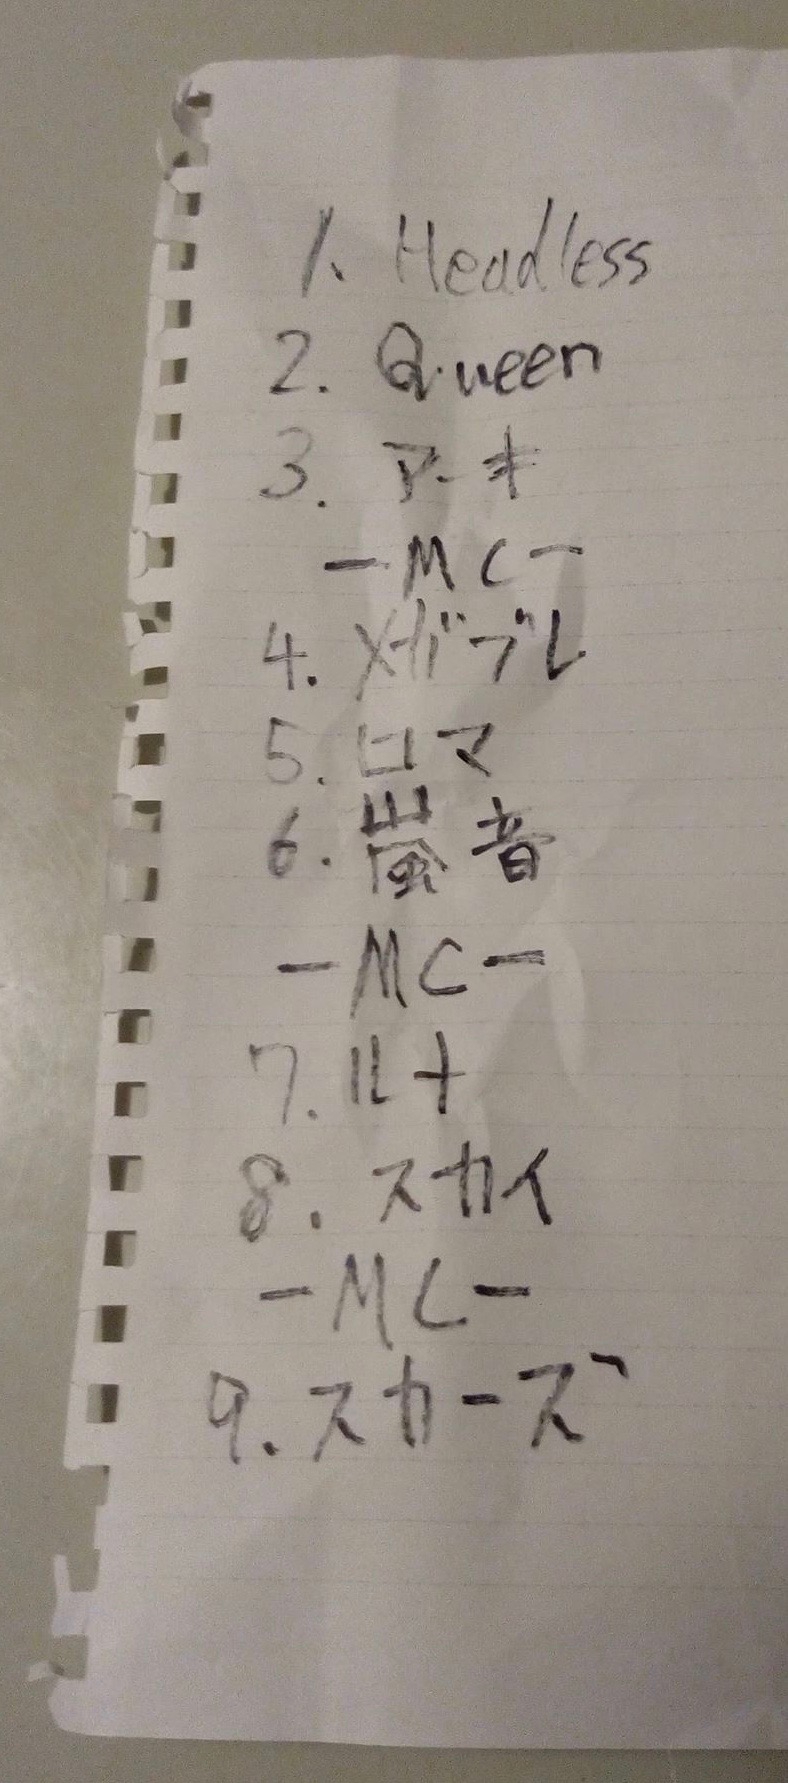 1. Headless
2. Queen
3. アーキ
-MC-
4. メガブレ
5. ロマ
6. 嵐音
-MC-
7. ルナ
8. スカイ
-MC-
9. スカーズ